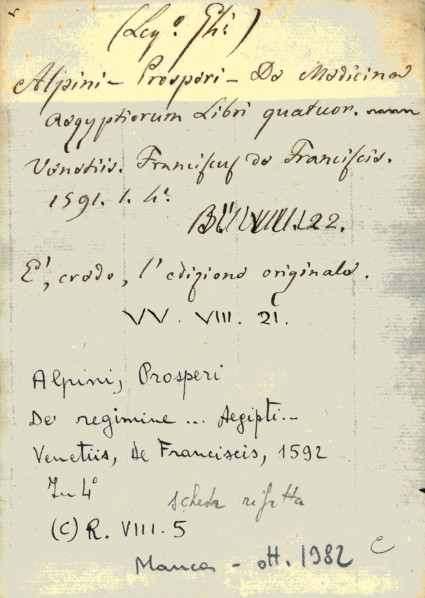 (Leg.º Ghi)
Alpini - Prosperi - De Medicina
Aegyptiorum Libri quatuor.
Venetiis. Franciscus de Franciscis.
1591. 1. 4º.
22.
E', credo, l'edizione originale.
VV. VIII. 21.
Alpini, Prosperi
De regimine ... Aegipti...
Venetiis, de Franciscis, 1592
In 4º
scheda rifatta
(C) R. VIII. 5
Manca - ott. 1982
C